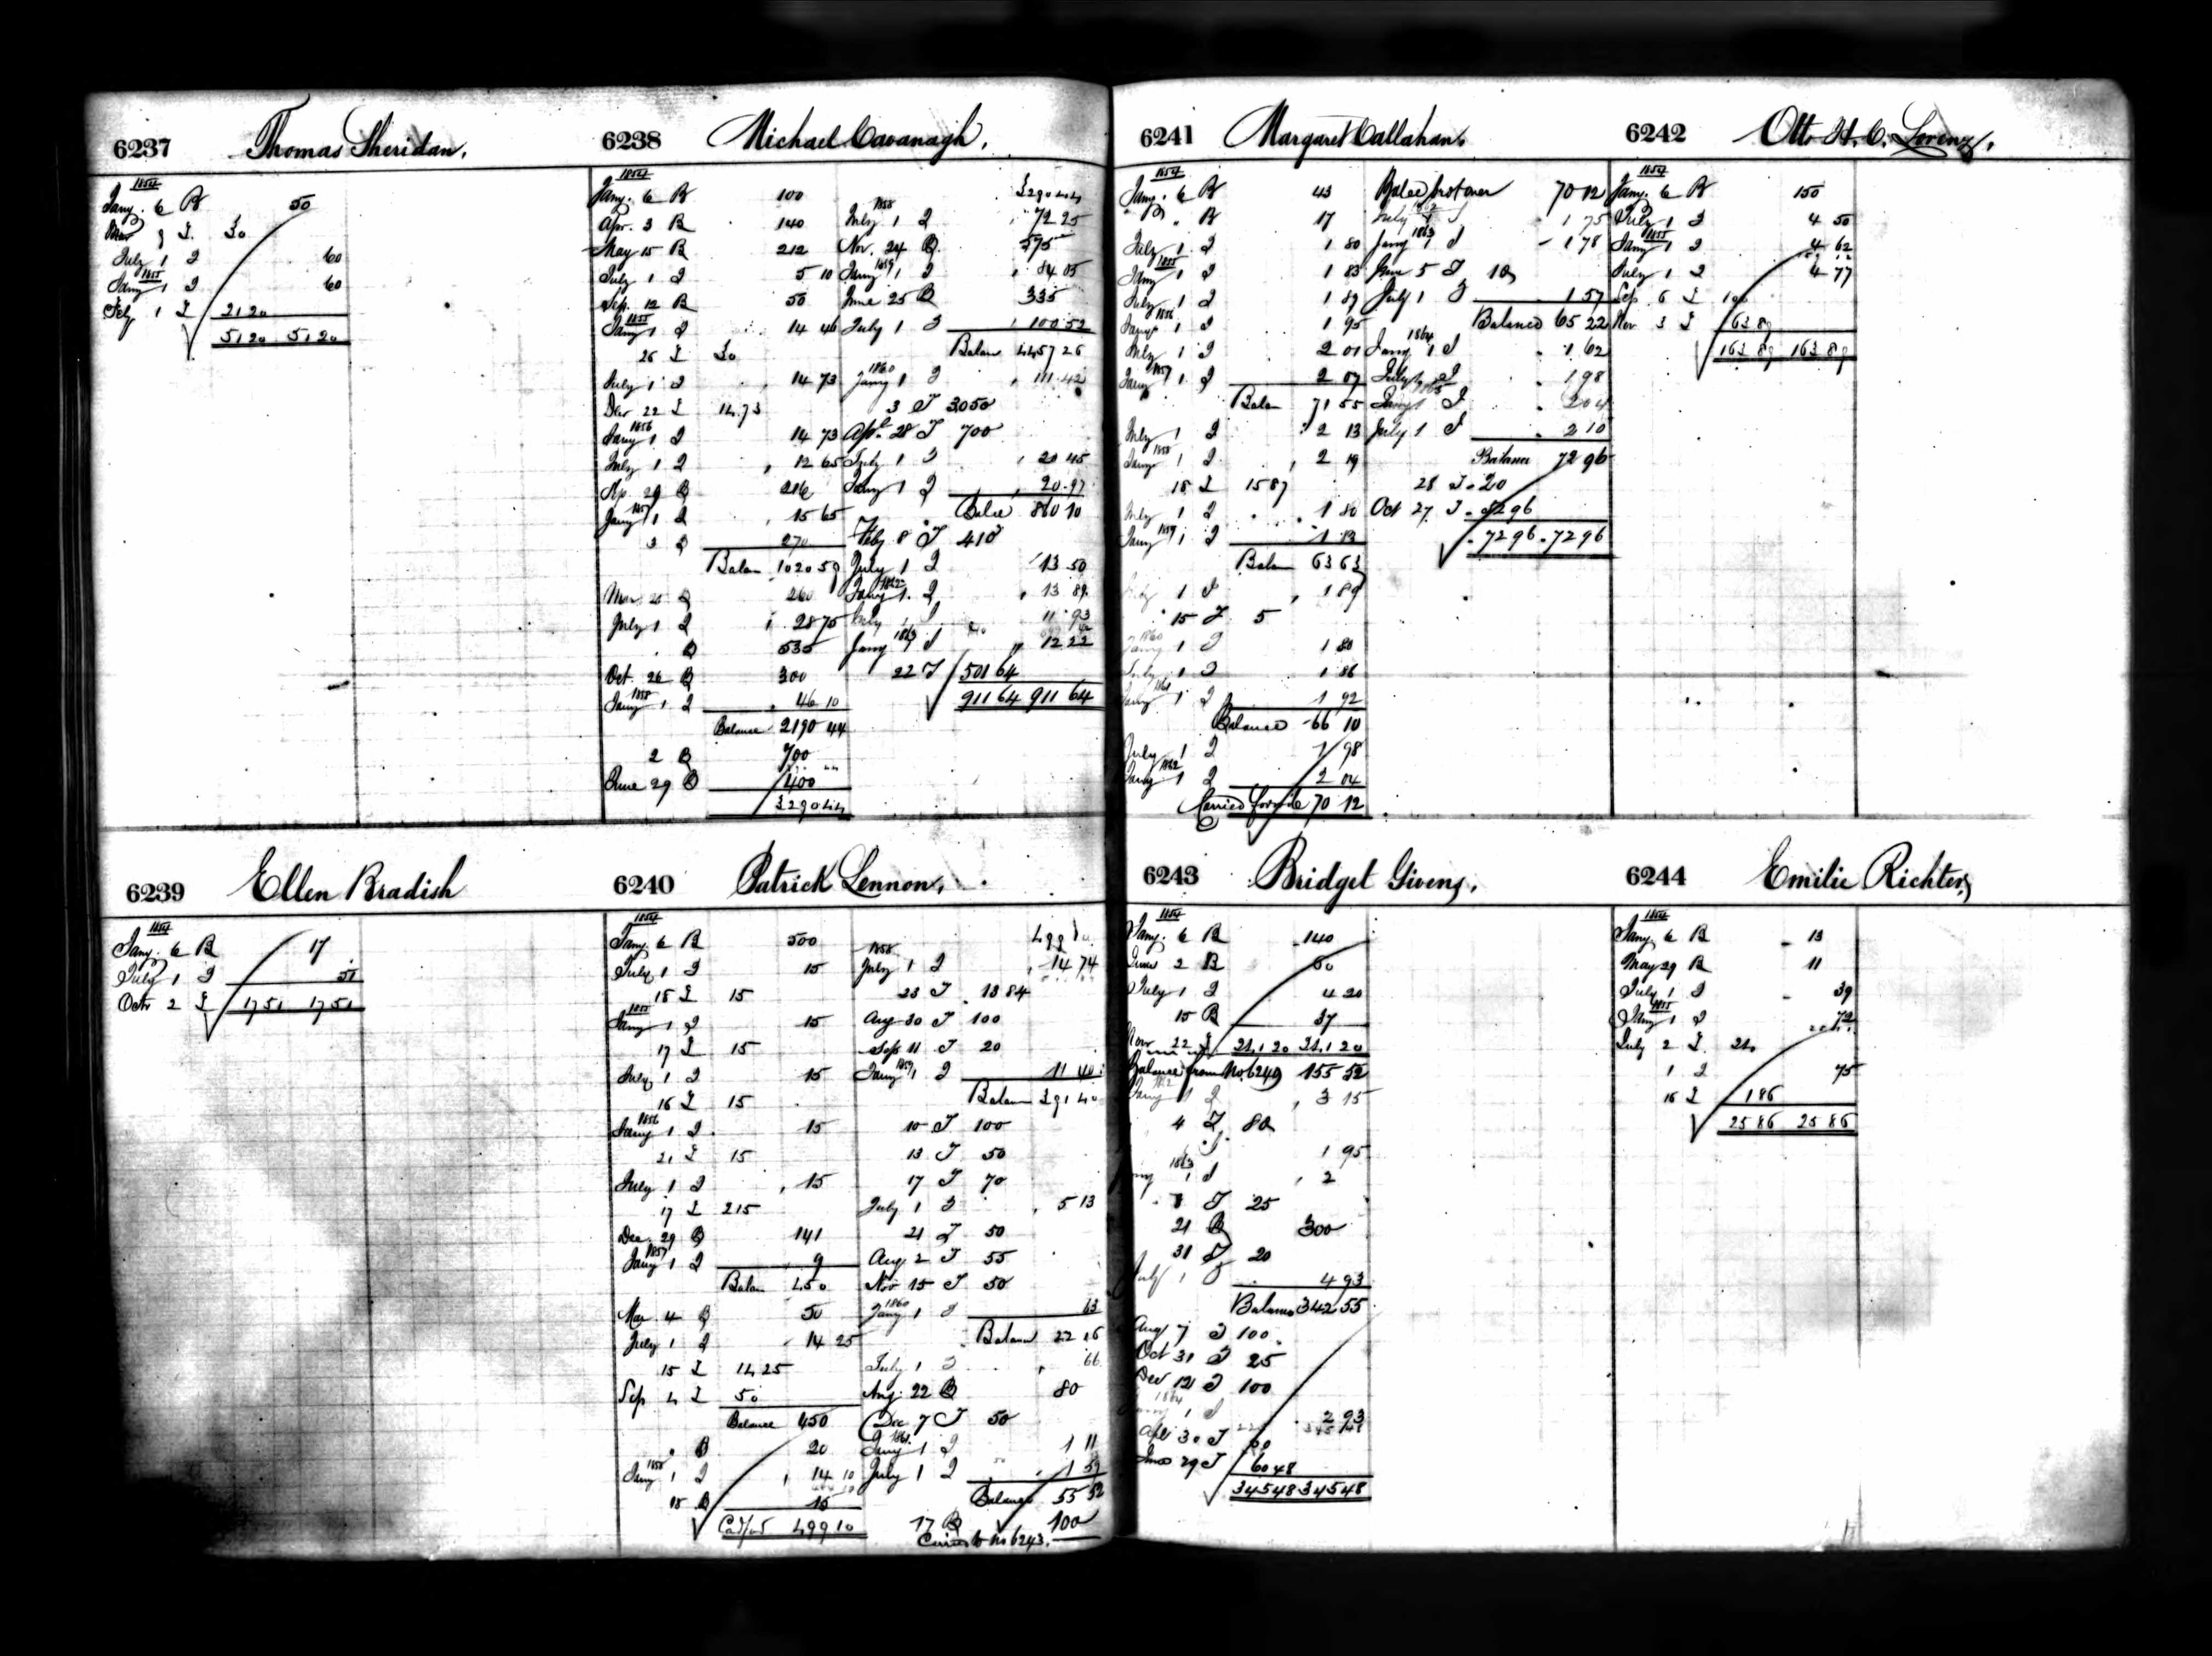 6237 Thomas Sheridan,
1854
Jany. 6 B 50
Mar 9 I 30
July 1 I 60
1855
Jany 1 I 60
July 1 I 21 20
51 20 51 20
6238 Michael Cavanagh,
1854
Jany. 6 B 100
Apr. 3 B 140
May 15 B 212
July 1 I 5 10
Sep. 12 B 50
1855
Jany 1 I 14 46
26 I 30
July 1 I 14 73
Dec 22 I 14.73
1856
Jany 1 I 14 73
July 1 I 12 65
Sep. 29 B 216
1857
Jany 1 I 15 65
3 B 270
Balan 1020 59
Mar. 20 B 260
July 1 I 28 75
B 535
Oct. 26 B 300
1858
Jany 1 I 46 10
Balance 2190 44
2 B 700
June 29 B 400
3290 44
3290 44
1858
July 1 I 72 25
Nov. 24 B 575
1859
Jany 1 I 84 05
June 25 B 335
July 1 I 100 52
Balan 4457 26
1860
Jany 1 I 111 42
3 T 3050
Apl. 28 T 700
July 1 I 20 45
Jany 1 I 20 97
Balce 860 10
Feby 8 T 410
July 1 I 13 50
1862
Jany 1 I 13 89
July 1 I 11 93
1863
Jany 1 I 12 22
22 T 501 64
911 64 911 64
6239 Ellen Bradish
1854
Jany. 6 B 17
July 1 I 51
Octr 2 I 17 51 17 51
6240 Patrick Lennon,
1854
Jany. 6 B 500
July 1 I 15
18 I 15
1855
Jany 1 I 15
17 I 15
July 1 I 15
16 I 15
1856
Jany 1 I 15
21 I 15
July 1 I 15
17 I 215
Dec. 29 B 141
1857
Jany 1 I 9
Balan 450
Mar 4 B 50
July 1 I 14 25
15 I 14 25
Sep 4 I 50
Balance 450
B 20
1858
Jany 1 I 14 10
18 B 15
Cad ford 499 10
499 10
1858
July 1 I 14 74
23 T 13 84
Aug 30 T 100
Sep 11 T 20
1859
Jany 1 I 11 40
Balan 391 40
10 T 100
13 T 50
17 T 70
July 1 I 5 13
21 T 50
Aug. 2 T 55
Nov 15 T 50
1860
Jany 1 I 63
Balan 22 16
July 1 I 66
Aug. 22 B 80
Dec 7 T 50
1861
Jany 1 I 1 11
July 1 I 1 59
Balance 55 52
17 B 100
Carried to No 6243.
6241 Margaret Callahan.
1854
Jany. 6 B 43
B 17
July 1 I 1 80
1855
Jany 1 I 1 83
July 1 I 1 89
1856
Jany 1 I 1 95
July 1 I 2 01
1857
Jany 1 I 2 07
Balan 71 55
July 1 I 2 13
1858
Jany 1 I 2 19
18 I 15 87
July 1 I 1 80
1859
Jany 1 I 1 83
Balan 63 63
July 1 I 1 89
15 T 5
1860
Jany 1 I 1 80
July 1 I 1 86
1861
Jany 1 I 1 92
Balance 66 10
July 1 I 1 98
1862
Jany 1 I 2 04
Carried forwd 70 12
Balce brot over 70 12
July 1 I 1 75
1863
Jany 1 I 1 78
June 5 T 10
July 1 I 1 57
Balance 65 22
1864
Jany 1 I 1 62
July 1 I 1 98
1865
Jany 1 I 2 04
July 1 I 2 10
Balance 72 96
28 T 20
Oct 27 T 52 96
72 96 72 96
6242 Otto H. C. Lorenz,
1854
Jany. 6 B 150
July 1 I 4 50
1855
Jany 1 I 4 62
July 1 I 4 77
Sep. 6 I 100
Nov. 3 I 63 89
163 89 163 89
6243 Bridget Givens,
1854
Jany. 6 B 140
June 2 B 60
July 1 I 4 20
15 B 37
Nov 22 I 241 20 241 20
Balance from No. 6240 155 52
1862
Jany 1 I 3 15
4 T 80
I 1 95
1863
Jany 1 I 2
8 T 25
21 B 300
31 T 20
July 1 I 4 93
Balance 342 55
Aug 7 T 100
Oct 31 T 25
Dec 12 T 100
1864
Jany 1 I 2 93
Apl 30 T 60
June 29 T 60 48
345 48 345 48
6244 Emilie Richter,
1854
Jany. 6 B 13
May 29 B 11
July 1 I 39
1855
Jany 1 I 72
July 2 I 24
1 I 75
16 I 1 86
25 86 25 86